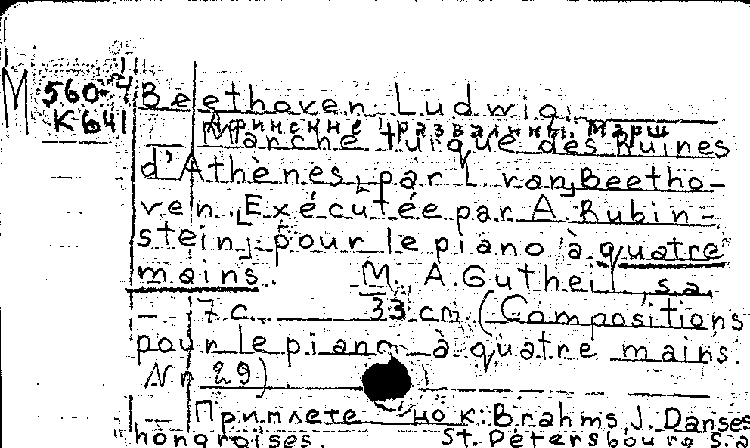 М 560-4 Beethoven Ludwig.
К 641 Афинские развалины. Марш
Marche turque des Ruines
d'Athènes, par L. van Beetho-
ven. [Exécutée par A. Rubin-
stein] pour le piano à quatre
mains. M., A. Gutheil, s.a.
- 7 с. 33 cm. (Compositions
pour le piano à quatre mains.
Nr 29)
- Приплетено к: Brahms, J. Danses
hongroises. St. Pétersbourg s.a.